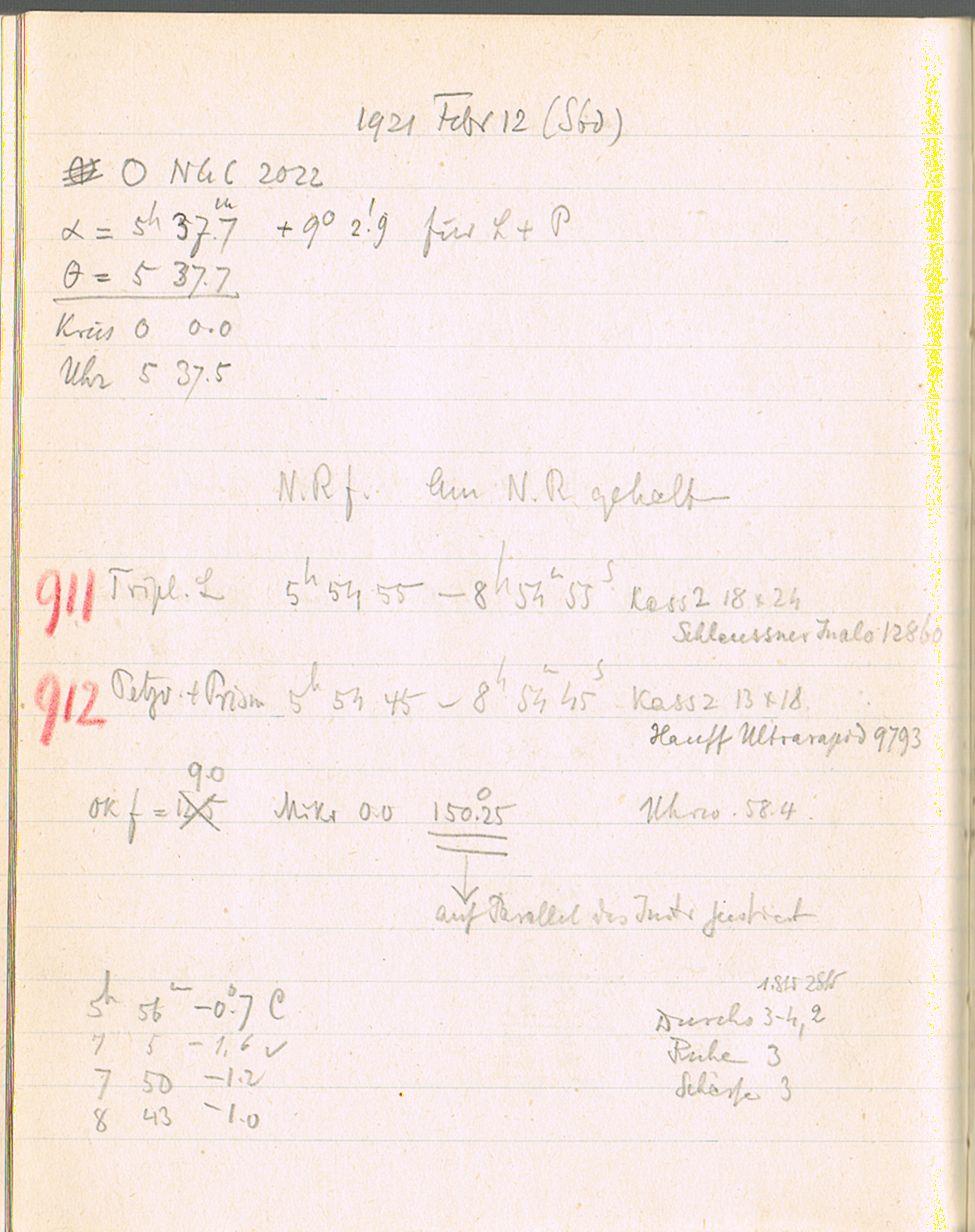 1921 Febr 12 (Sbd)
O NGC 2022
α = 5h 37.m7 + 9° 2.'9 für L + P
θ = 5 37.7
Kreis 0 0.0
Uhr 5 37.5
N.R f. Am N.R. gehalt
911 Tripl. L 5h 54 55 – 8h 54m 55s Kass 2 18 x 24
Schleussner Inalo 12860
912 Petzv. + Prism 5h 54 45 – 8h 54m 45s Kass 2 13 x 18
Hauff Ultrarapid 9793
9.0
OK f = Mikr 0.0 150.°25 Uhrw. 58.4
auf Parallel des Instr justiert
5h 56m –0.°7 C
7 5 –1.6 ✓
7 50 –1.2
8 43 –1.0
Durchs 3-4, 2
Ruhe 3
Schärfe 3